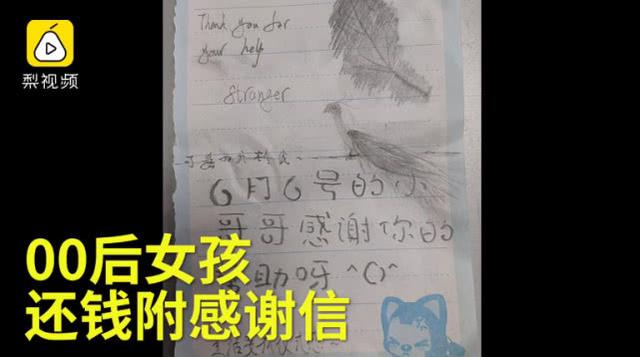 梨视频
Thank you for
your help
Stranger
6月6号的小
哥哥感谢你的
助呀^O^
00后女孩
还钱附感谢信